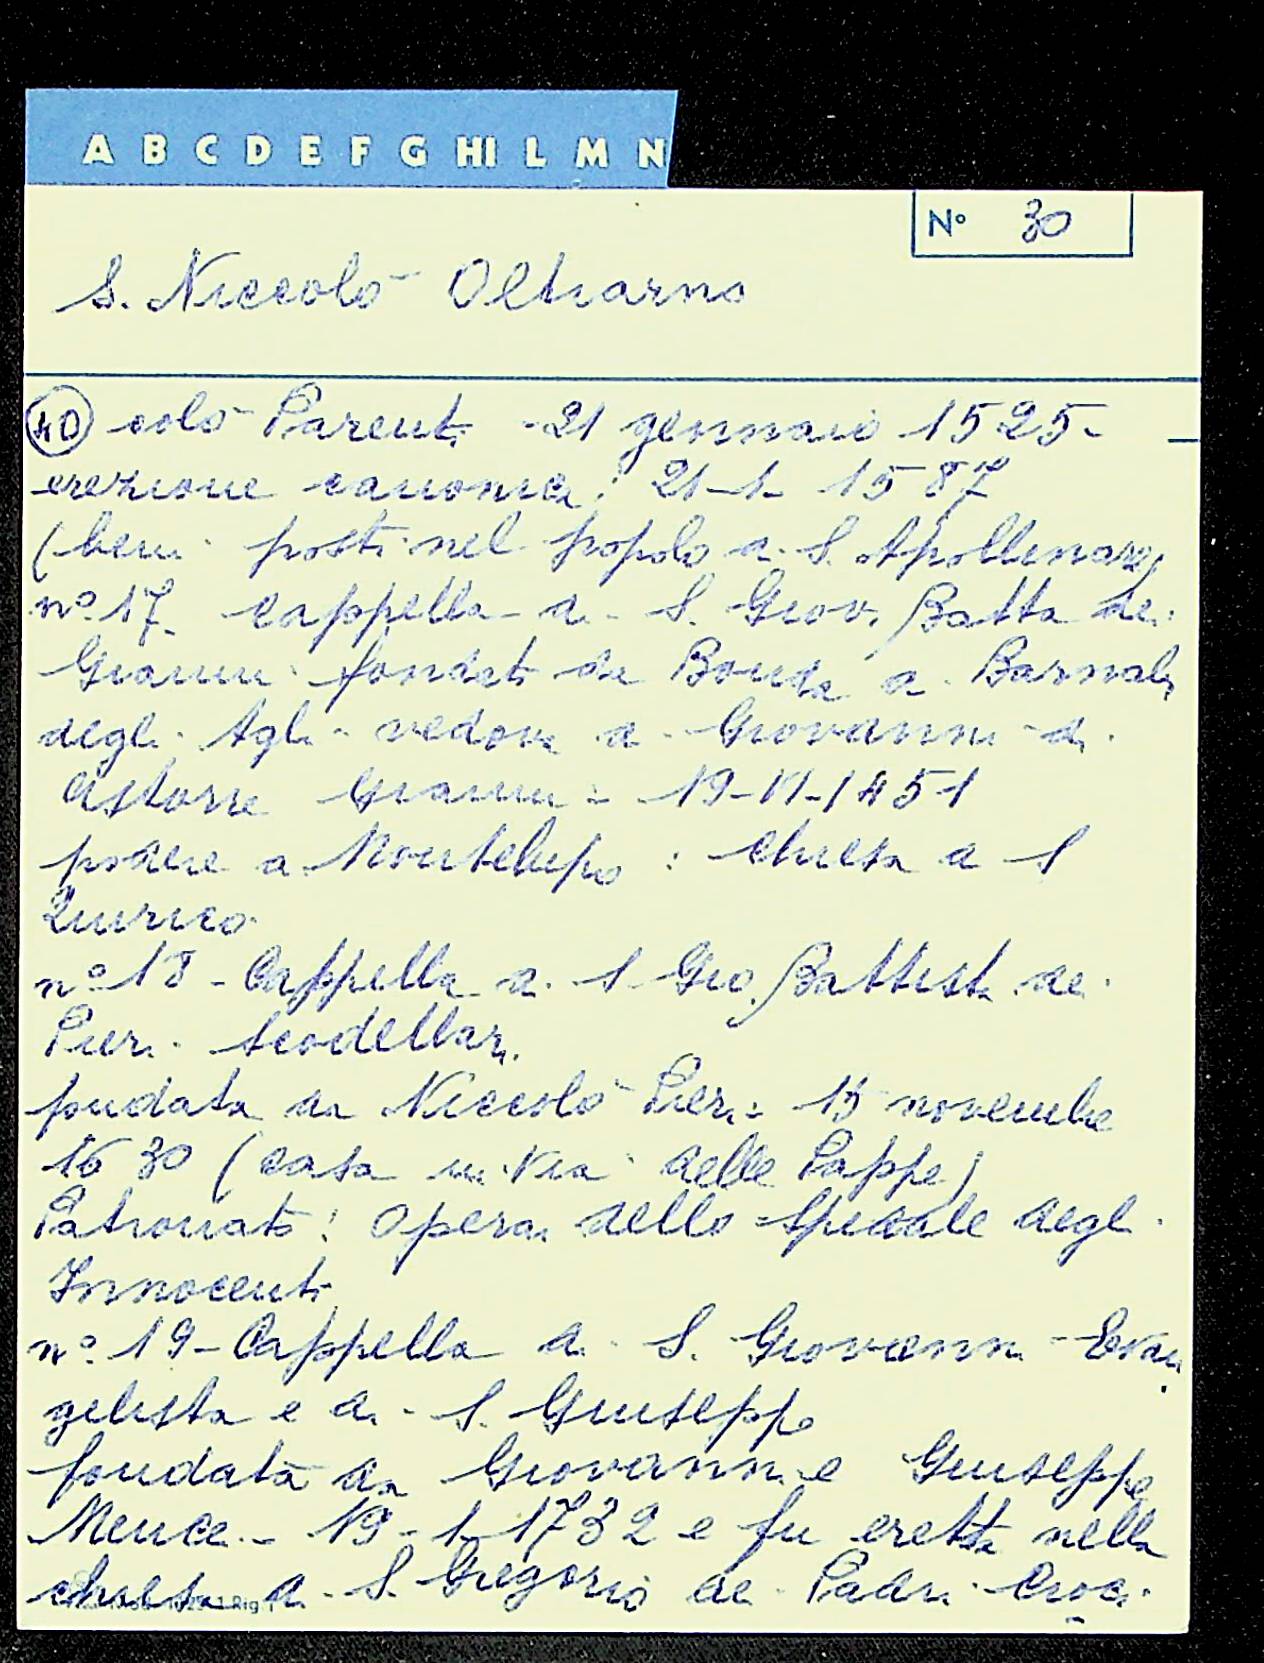 A B C D E F G HI L M N
N° 30
S. Niccolò Oltrarno
40 colò Parenti - 21 gennaio 1525 -
erezione canonica: 21-1-1587
(beni posti nel popolo di S. Apollenare)
n° 17 cappella di S. Giov. Batta dei
Gianni fondata da Bonda di Barnab
degli Agli vedova di Giovanni di
Astorre Gianni: 19-VI-1451
podere a Montelupo: chiesa di S
Quirico
n° 18 - Cappella di S Gio. Battista dei
Pieri Scodellari.
fondata da Niccolò Pieri: 15 novembre
1630 (casa in Via delle Pappe)
Patronato: Opera dello Spedale degli
Innocenti
n° 19 - Cappella di S. Giovanni Evan
gelista e di S. Giuseppe
fondata da Giovanni e Giuseppe
Menci - 19-1-1732 e fu eretta nella
chiesa di S. Gregorio dei Padri Croci